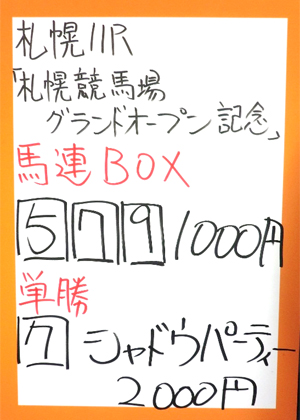 札幌11R
「札幌競馬場
グランドオープン記念」
馬連BOX
5 7 9 1000円
単勝
7 シャドウパーティー
2000円